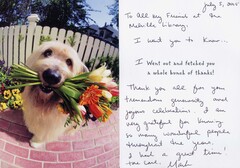 July 5, 2005
To All my Friends at the
Melville Library.
I want you to know.
I Went out and fetched you
a whole bunch of thanks!
Thank you all for your
tremendous generosity and
joyous celebration. I am
very grateful for knowing
so many wonderful people
throughout the years.
I had a great time!